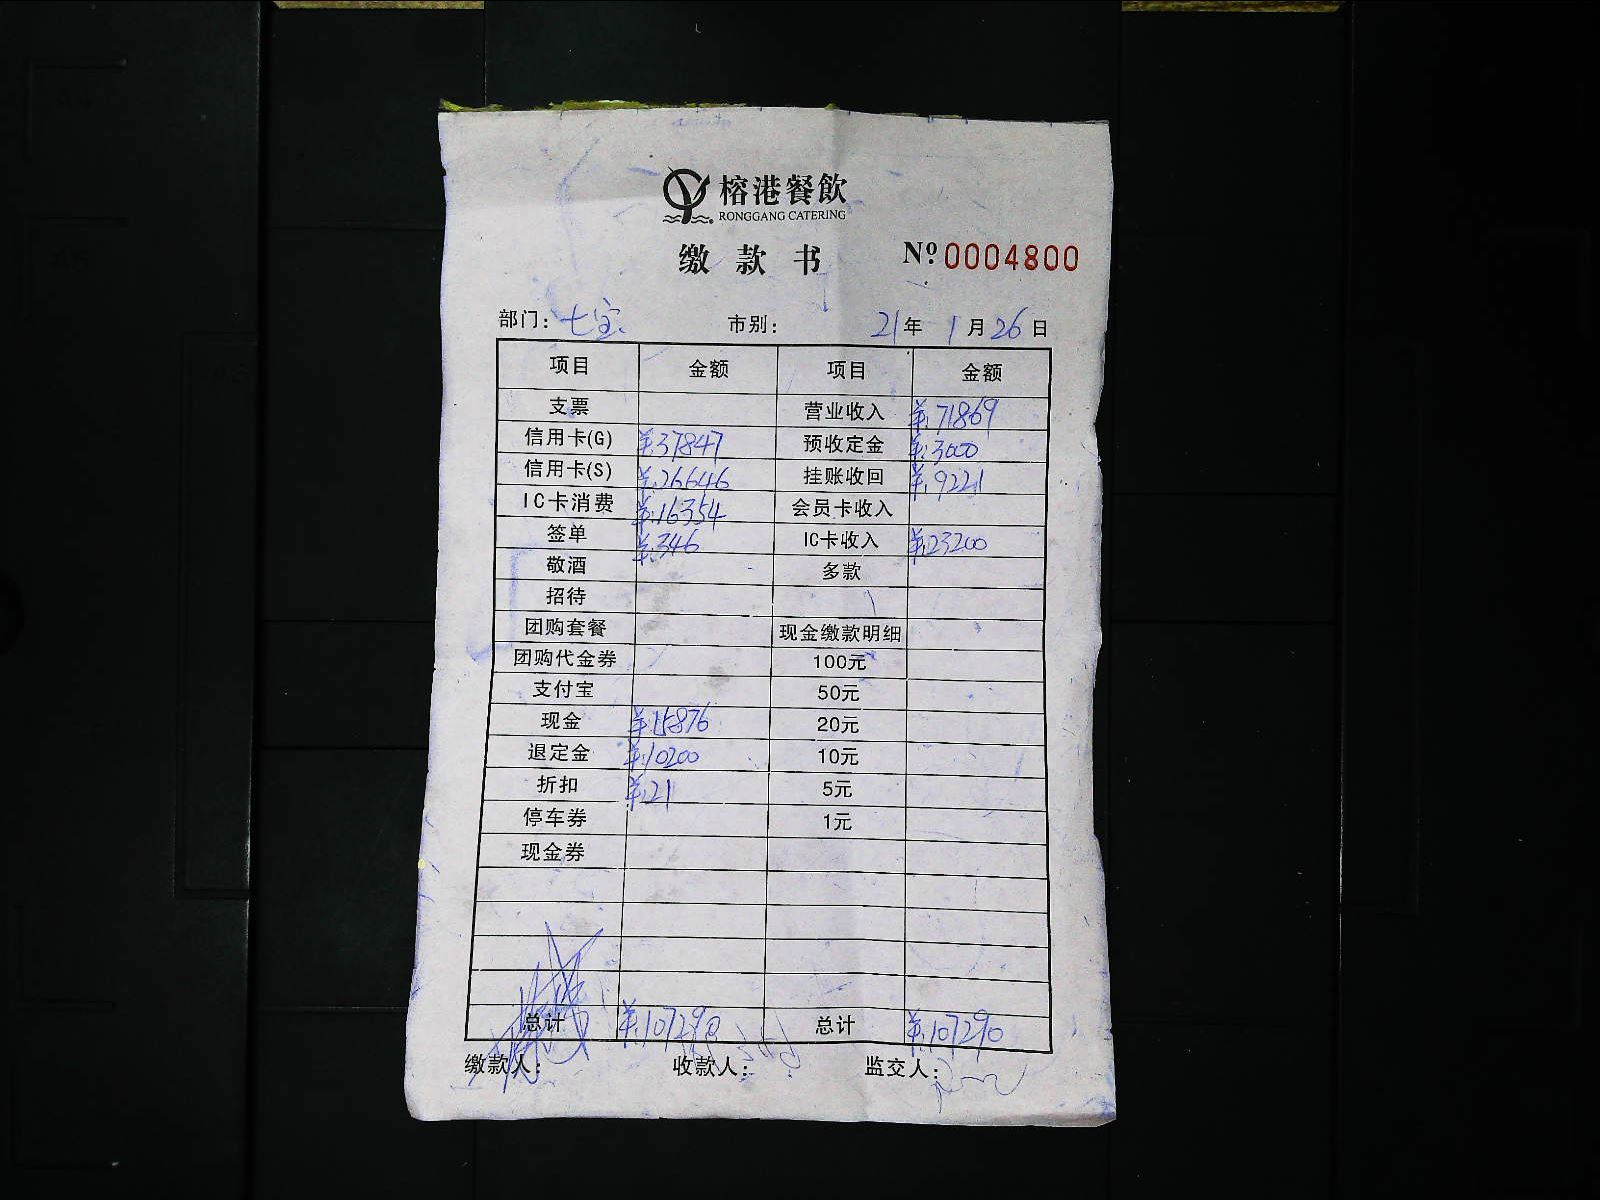 榕港餐飲
RONGGANG CATERING
缴款书 Nº 0004800
部门: 七宝 市别: 21年 1月26日
项目 金额 项目 金额
支票 营业收入 ¥:71869
信用卡(G) ¥:37847 预收定金 ¥:3000
信用卡(S) ¥:26646 挂账收回 ¥:9221
IC卡消费 ¥:16354 会员卡收入
签单 ¥:346 IC卡收入 ¥:23200
敬酒 多款
招待
团购套餐 现金缴款明细
团购代金券 100元
支付宝 50元
现金 ¥:15876 20元
退定金 ¥:10200 10元
折扣 ¥:21 5元
停车券 1元
现金券
总计 ¥:107290 总计 ¥:107290
缴款人: 收款人: 监交人: